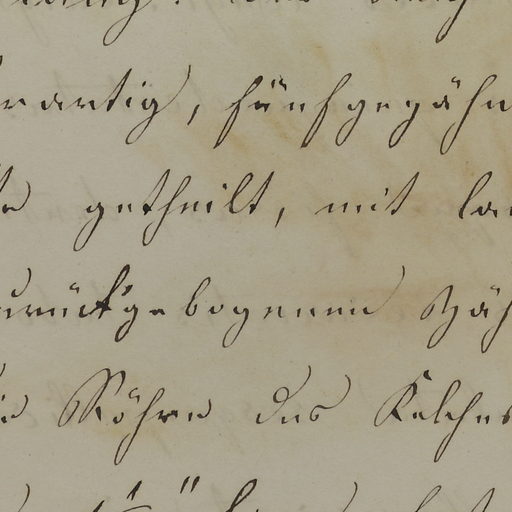 rartig, fünfgezähn
te getheilt, mit la
zurückgebogenen Zäh
die Röhre des Kelches